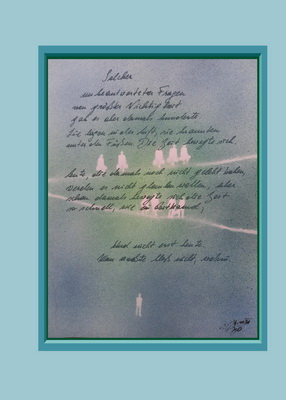 Solcher
unbeantworteter Fragen
von größter Wichtigkeit
gab es aber damals hunderte
Sie lagen in der Luft, sie brannten
unter den Füßen. Die Zeit bewegte sich.
Leute, die damals noch nicht gelebt haben,
werden es nicht glauben wollen, aber
schon damals bewegte sich die Zeit
so schnell, wie ein
Und nicht erst heute.
Man wußte bloß nicht, wohin.